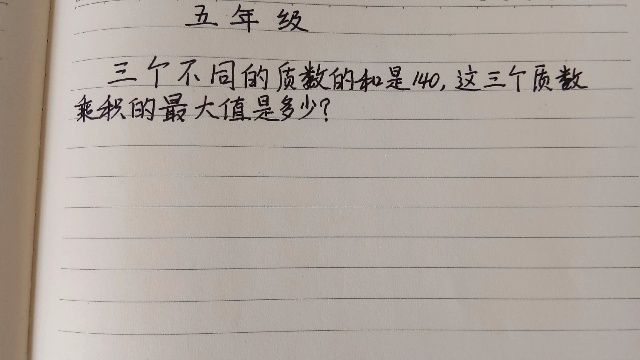 五年级
三个不同的质数的和是140,这三个质数
乘积的最大值是多少?